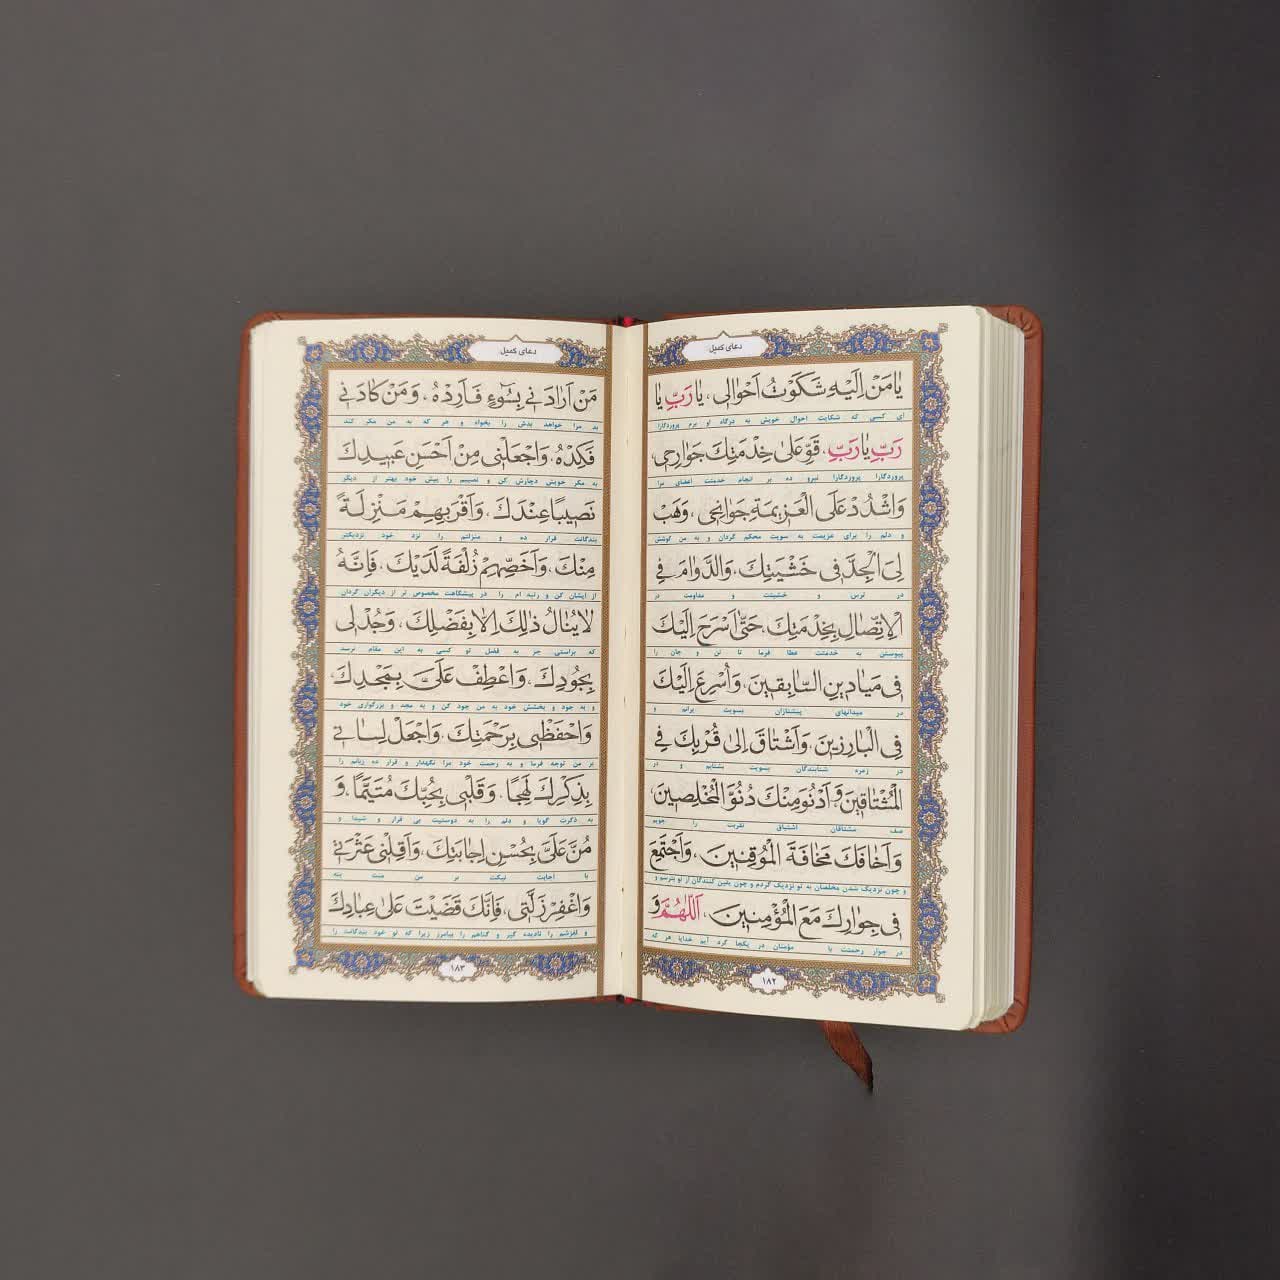 دعای کمیل
یا مَنْ اِلَیْهِ شَکَوْتُ اَحْوالی، یا رَبِّ یا
ای کسی که شکایت احوال خویش به درگاه او برم پروردگارا
رَبِّ یا رَبِّ، قَوِّ عَلیٰ خِدْمَتِکَ جَوارِحی
پروردگارا پروردگارا نیرو ده بر انجام خدمتت اعضای مرا
وَ اشْدُدْ عَلَی الْعَزیمَةِ جَوانِحی، وَ هَبْ
و دلم را برای عزیمت به سویت محکم گردان و به من کوشش
لِیَ الْجِدَّ فی خَشْیَتِکَ، وَ الدَّوامَ فِی
در ترس و خشیتت و مداومت در
الْاِتِّصالِ بِخِدْمَتِکَ، حَتّیٰ اَسْرَحَ اِلَیْکَ
پیوستن به خدمتت عطا فرما تا تن و جان را
فی مَیادینِ السّابِقینَ، وَ اُسْرِعَ اِلَیْکَ
در میدانهای پیشتازان بسویت برانم و
فِی الْبارِزینَ، وَ اَشْتاقَ اِلیٰ قُرْبِکَ فِی
در زمره شتابندگان بسویت بشتابم و در
الْمُشْتاقینَ، وَ اَدْنُوَ مِنْکَ دُنُوَّ الْمُخْلِصینَ
صف مشتاقان اشتیاق تقربت را جویم
وَ اَخافَکَ مَخافَةَ الْمُوقِنینَ، وَ اَجْتَمِعَ
و چون نزدیک شدن مخلصان به تو نزدیک گردم و چون یقین کنندگان از تو بترسم و
فی جِوارِکَ مَعَ الْمُؤْمِنینَ، اَللّٰهُمَّ وَ
در جوار رحمتت با مؤمنان در یکجا گرد آیم خدایا هر که
۱۸۲
دعای کمیل
مَنْ اَرادَنی بِسُوءٍ فَاَرِدْهُ، وَ مَنْ کادَنی
بد مرا خواهد بدش را بخواه و هر که به من مکر کند
فَکِدْهُ، وَ اجْعَلْنی مِنْ اَحْسَنِ عَبیدِکَ
به مکر خویش دچارش کن و نصیبم را پیش خود بهتر از دیگر
نَصیبًا عِنْدَکَ، وَ اَقْرَبِهِمْ مَنْزِلَةً
بندگانت قرار ده و منزلتم را نزد خود نزدیکتر
مِنْکَ، وَ اَخَصِّهِمْ زُلْفَةً لَدَیْکَ، فَاِنَّهُ
از ایشان کن و رتبه ام را در پیشگاهت مخصوص تر از دیگران گردان
لا یُنالُ ذٰلِکَ اِلّا بِفَضْلِکَ، وَ جُدْ لی
که براستی جز به فضل تو کسی به این مقام نرسد
بِجُودِکَ، وَ اعْطِفْ عَلَیَّ بِمَجْدِکَ
و به جود و بخشش خود به من جود کن و به مجد و بزرگواری خود
وَ احْفَظْنی بِرَحْمَتِکَ، وَ اجْعَلْ لِسانی
بر من توجه فرما و به رحمت خود مرا نگهدار و قرار ده زبانم را
بِذِکْرِکَ لَهِجًا، وَ قَلْبی بِحُبِّکَ مُتَیَّمًا، وَ
به ذکرت گویا و دلم را به دوستیت بی قرار و شیدا و
مُنَّ عَلَیَّ بِحُسْنِ اِجابَتِکَ، وَ اَقِلْنی عَثْرَتی
با اجابت نیکت بر من منت بنه
وَ اغْفِرْ زَلَّتی، فَاِنَّکَ قَضَیْتَ عَلیٰ عِبادِکَ
و لغزشم را نادیده گیر و گناهم را بیامرز زیرا که تو خود بندگانت را
۱۸۳